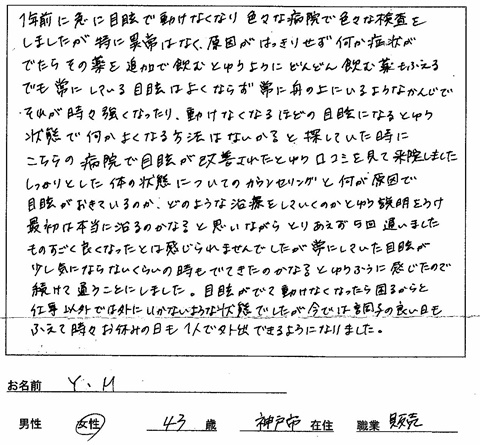 1年前に急に目眩で動けなくなり色々な病院で色々な検査を
しましたが特に異常はなく、原因がはっきりせず何か症状が
でたらその薬を追加で飲むとゆうようにどんどん飲む薬もふえる
でも常にしている目眩はよくならず常に舟の上にいるようなかんじで
それが時々強くなったり、動けなくなるほどの目眩になるとゆう
状態で何かよくなる方法はないかなと探していた時に
こちらの病院で目眩が改善されたとゆう口コミを見て来院しました
しっかりとした体の状態についてのカウンセリングと何が原因で
目眩がおきているのか、どのような治療をしていくのかとゆう説明をうけ
最初は本当に治るのかなと思いながらとりあえず5回通いました
ものすごく良くなったとは感じられませんでしたが常にしていた目眩が
少し気にならないくらいの時もでてきたのかなとゆうふうに感じたので
続けて通うことにしました。目眩がでて動けなくなったら困るからと
仕事以外では外にいかないような状態でしたが今では調子の良い日も
ふえて時々お休みの日も1人で外出できるようになりました。
お名前 Y.M
男性 女性 43 歳 神戸市 在住 職業 販売